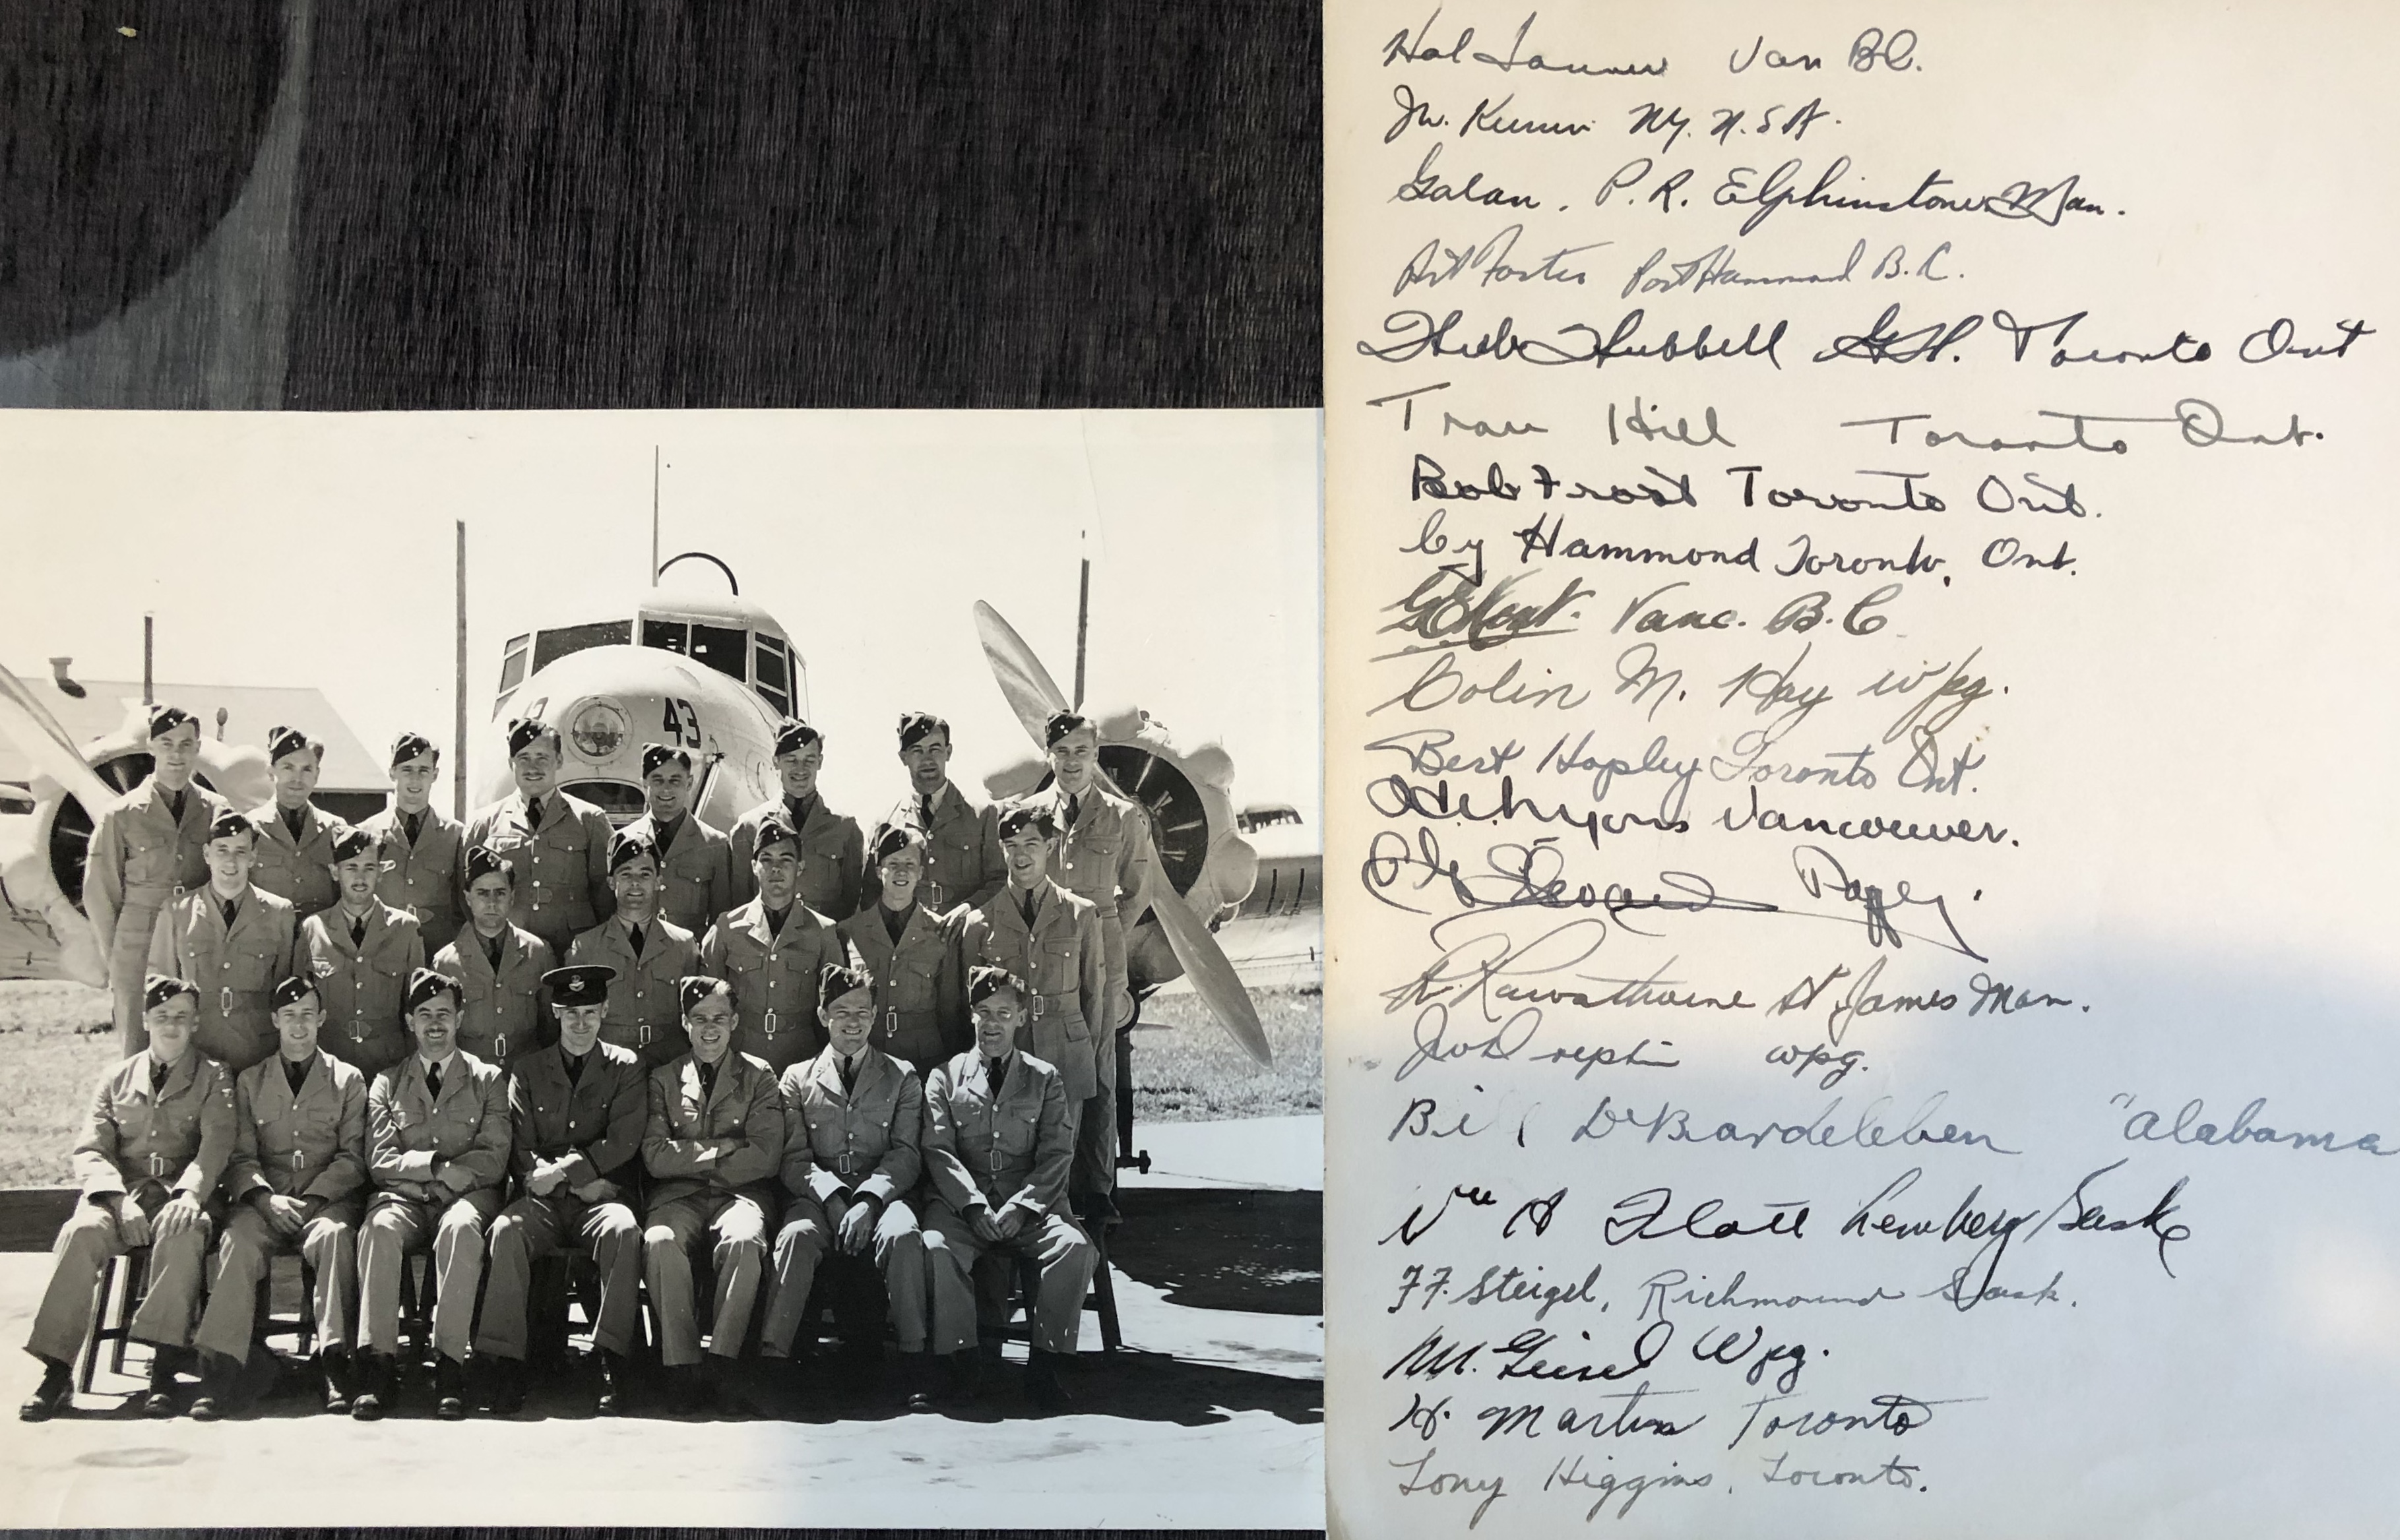 43
Hal Van BC.
Jw. NY. U.S.A.
Galan. P.R. Elphinstone Man.
Art Foster Port Hammond B.C.
Hub Hubbell G.H. Toronto Ont
Trav Hill Toronto Ont.
Bob Frost Toronto Ont.
Cy Hammond Toronto, Ont.
Vanc. B.C
Colin M. Hay Wpg.
Bert Hopley Toronto Ont.
Lyons Vancouver.
R. Rawsthorne St James Man.
wpg.
Bill DeBardeleben "Alabama
Wm H Flatt Lemberg Sask
F.F. Steigel, Richmound Sask.
M. Geisel Wpg.
H. Martin Toronto
Tony Higgins, Toronto.